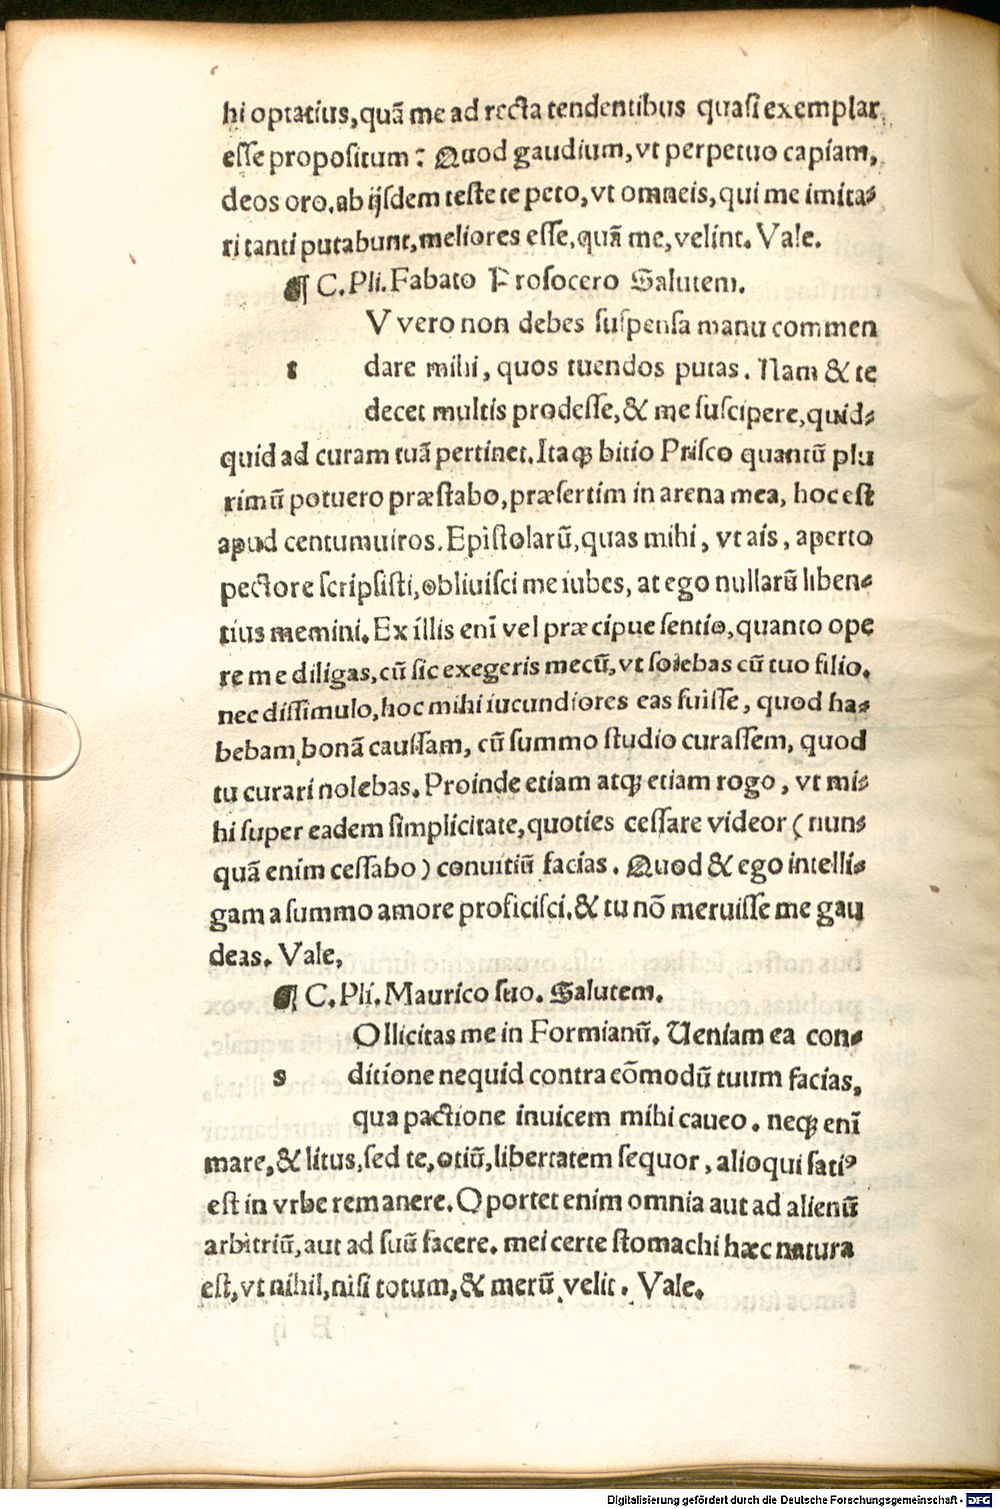 hi optatius,quã me ad recta tendentibus quasi exemplar
esse propositum: Quod gaudium,vt perpetuo capiam,
deos oro.ab ijsdem teste te peto,vt omneis,qui me imita-
ri tanti putabunt,meliores esse,quã me,velint. Vale.
¶ C.Pli.Fabato Prosocero Salutem.
V vero non debes suspensa manu commen
t dare mihi, quos tuendos putas. Nam & te
decet multis prodesse,& me suscipere,quid-
quid ad curam tuã pertinet.Itaqꝫ bitio Prisco quantũ plu
rimũ potuero præstabo,præsertim in arena mea, hoc est
apud centumuiros.Epistolarũ,quas mihi, vt ais, aperto
pectore scripsisti,obliuisci me iubes, at ego nullarũ liben-
tius memini.Ex illis enĩ vel præcipue sentio,quanto ope
re me diligas,cũ sic exegeris mecũ,vt solebas cũ tuo filio.
nec dissimulo,hoc mihi iucundiores eas fuisse, quod ha-
bebam bonã caussam, cũ summo studio curassem, quod
tu curari nolebas.Proinde etiam atqꝫ etiam rogo, vt mi-
hi super eadem simplicitate,quoties cessare videor (nun-
quã enim cessabo) conuitiũ facias. Quod & ego intelli-
gam a summo amore proficisci.& tu nõ meruisse me gau
deas. Vale,
¶ C.Pli.Maurico suo. Salutem.
Ollicitas me in Formianũ. Ueniam ea con-
s ditione nequid contra cõmodũ tuum facias,
qua pactione inuicem mihi caueo. neqꝫ enĩ
mare,& litus,sed te,otiũ,libertatem sequor, alioqui satiꝰ
est in vrbe remanere.Oportet enim omnia aut ad alienũ
arbitriũ,aut ad suũ facere. mei certe stomachi hæc natura
est,vt nihil,nisi totum,& merũ velit. Vale.
Digitalisierung gefördert durch die Deutsche Forschungsgemeinschaft - DFG